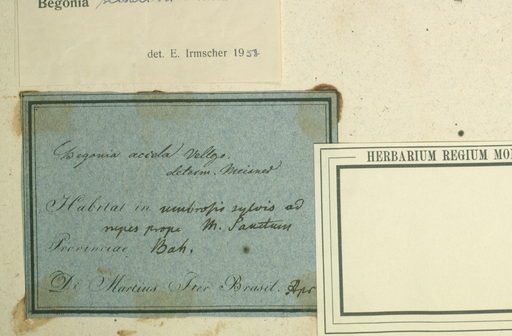 Begonia
det. E. Irmscher 1953
Begonia acida Vellzo.
determ. Meisned
Habitat in umbrosis sylvis ad
rupes prope M. Sanctum
Provinciae Bah.
De Martius Iter Brasil. Apr
HERBARIUM REGIUM MO